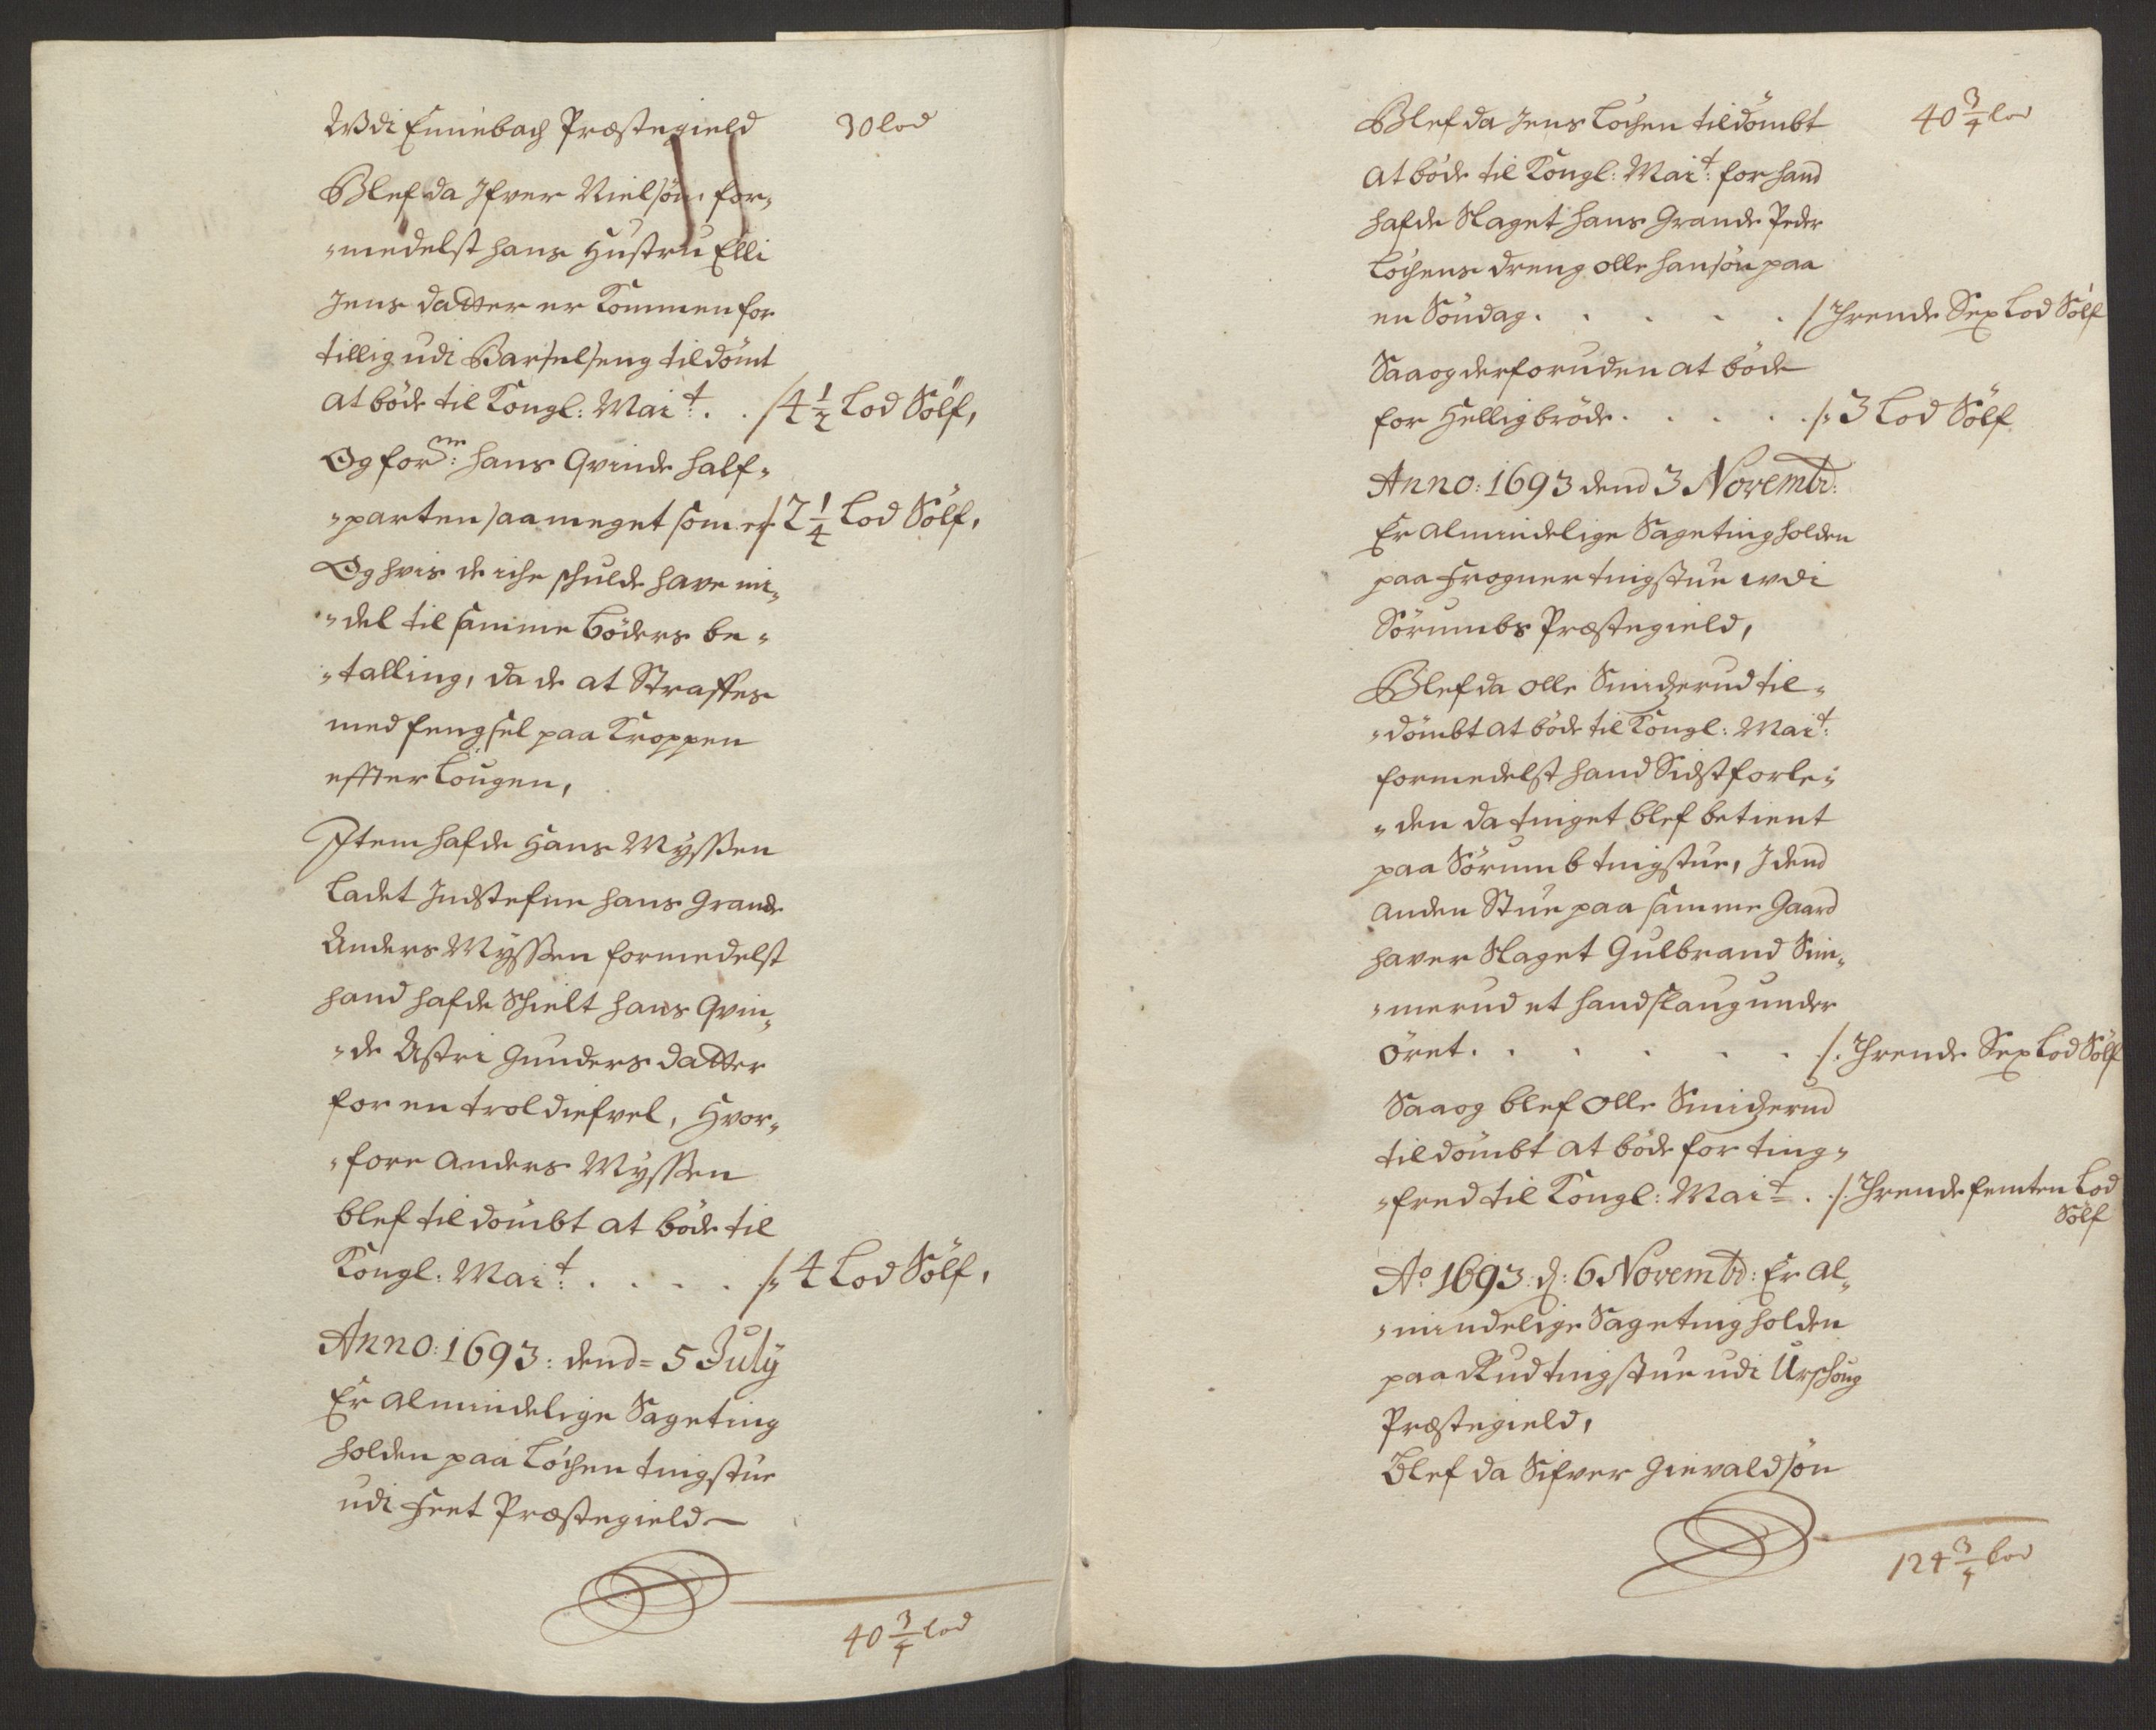 Wdi Ennebach Præstegield 30 lod
Blef da Ifver Nielsön, for-
-medelst hans Hustru Elli
Jens datter er Kommen for
tillig udi Barselseng tildömt
at böde til Kongl: Mait: . . /4 1/2 Lod Sölf,
Og forne: hans Qvinde half-
-parten saa meget som er /: 2 1/4 Lod Sölf,
Og hvis de iche schulde have mi-
-del til samme böders be-
-talling, da de at Straffes
med fengsel paa Kroppen
effter Lougen,
Item hafde Hans Myssen
Ladet Indstefne hans Grande
Anders Myssen formedelst
hand hafde Schielt hans Qvin-
-de Astri Gunders datter
for en trol diefvel, Hvor-
-fore Anders Myssen
blef til dömbt at böde til
Kongl: Mait: . . . . /: 4 Lod Sölf,
Anno: 1693: dend= 5 July
Er almindelige Sageting
holden paa Löchen tingstue
udi Feet Præstegield
40 3/4 lod
Blef da Jens Löchen tildömbt 40 3/4 lod
at böde til Kongl: Mait: for hand
hafde Slaget hans Grande Peder
Löchens dreng olle hansön paa
en Söndag. . . . . /Thrende Sex Lod Sölf
Saa og derforuden at böde
for Helligbröde . . . . . /: 3 Lod Sölf
Anno: 1693 dend 3 Novembr:
Er almindelige Sageting holden
paa Frogner tingstue wdi
Sörumbs Præstegield,
Blef da olle Smidzerud til-
-dömbt at böde til Kongl: Mait:
formedelst hand Sidst forle-
-den da tinget blef betient
paa Sörumb tingstue, I dend
anden Stue paa samme Gaard
haver Slaget Gulbrand Sim-
-merud et handslaug under
öret. . . . . . /: Thrende Sex Lod Sölf
Saa og blef olle Smidzerud
tildömbt at böde for ting-
-fred til Kongl: Mait . /: Thrende femten Lod
Sölf
Ao 1693: d: 6 Novembr: Er al-
-mindelige Sageting holden
paa Rud tingstue udi Urschoug
Præstegield,
Blef da Sifver Gievaldsön
124 3/4 lod